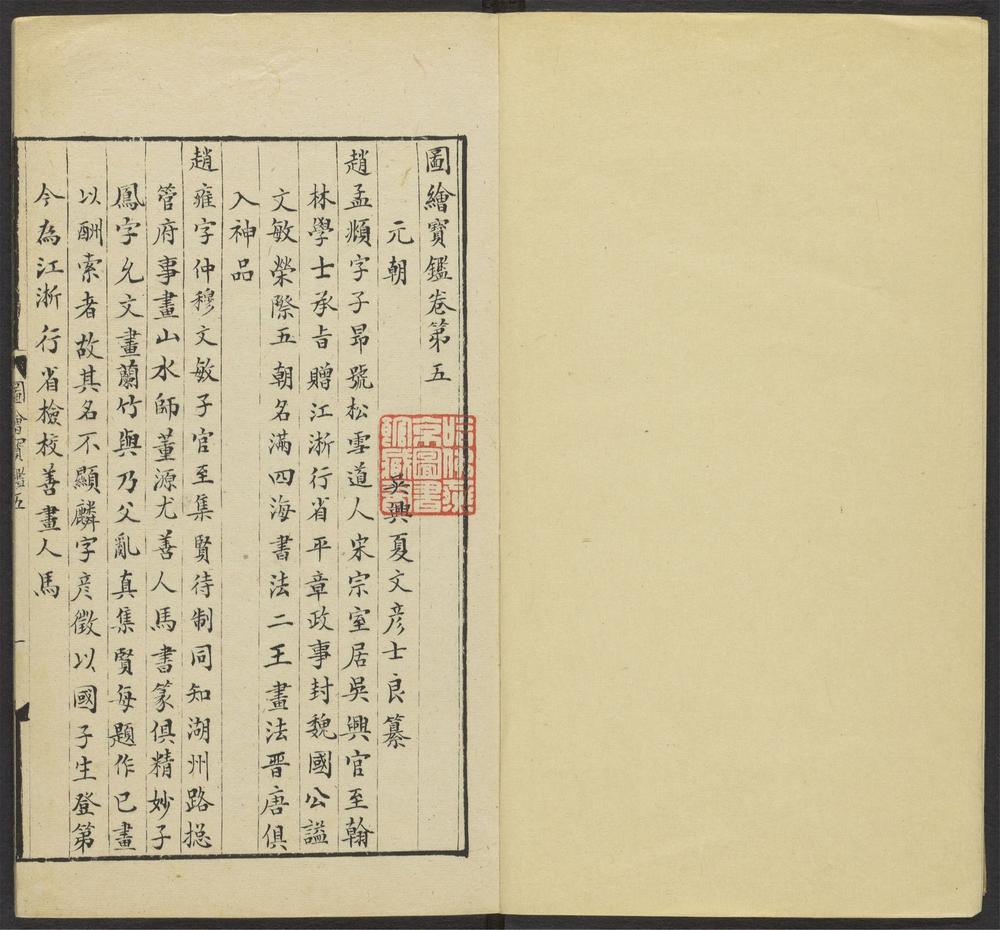 圖繪寶鑑卷第五
元朝
吳興夏文彦士良纂
趙孟頫字子昻號松雪道人宋宗室居吳興官至翰
林學士承㫖贈江浙行省平章政事封魏國公謚
文敏榮際五朝名滿四海書法二王畫法晋唐俱
入神品
趙雍字仲穆文敏子官至集賢待制同知湖州路揔
管府事畫山水師董源尤善人馬書篆俱精妙子
鳳字允文畫蘭竹與乃父亂真集賢每題作已畫
以酬索者故其名不顯麟字彦徵以國子生登第
今為江浙行省檢校善畫人馬
圖繪寶鑑五
一